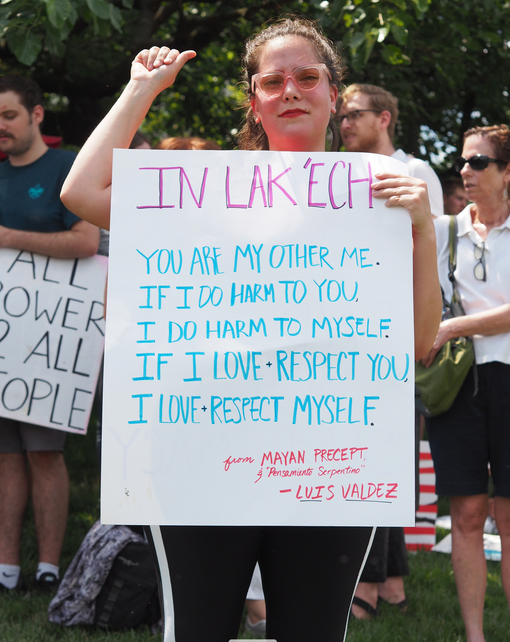 IN LAK'ECH
YOU ARE MY OTHER ME.
IF I DO HARM TO YOU,
I DO HARM TO MYSELF.
IF I LOVE + RESPECT YOU,
I LOVE + RESPECT MYSELF.
from MAYAN PRECEPT,
& "Pensamiento Serpentino"
- LUIS VALDEZ
ALL
POWER
2 ALL
EOPLE